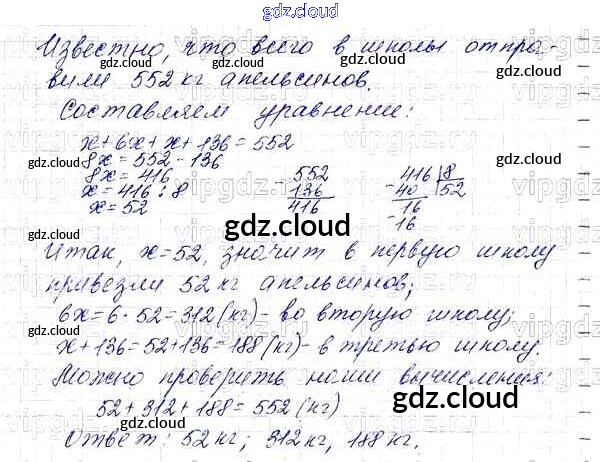 gdz.cloud
Известно, что всего в школы отпра-
вили 552 кг апельсинов.
Составляем уравнение:
x + 6x + x + 136 = 552
8x = 552 - 136
8x = 416
x = 416 : 8
x = 52
- 552
136
416
416 | 8
- 40 | 52
16
- 16
Итак, x = 52, значит в первую школу
привезли 52 кг апельсинов;
6x = 6 · 52 = 312 (кг) - во вторую школу;
x + 136 = 52 + 136 = 188 (кг) - в третью школу.
Можно проверить наши вычисления:
52 + 312 + 188 = 552 (кг)
Ответ: 52 кг; 312 кг, 188 кг.
gdz.cloud